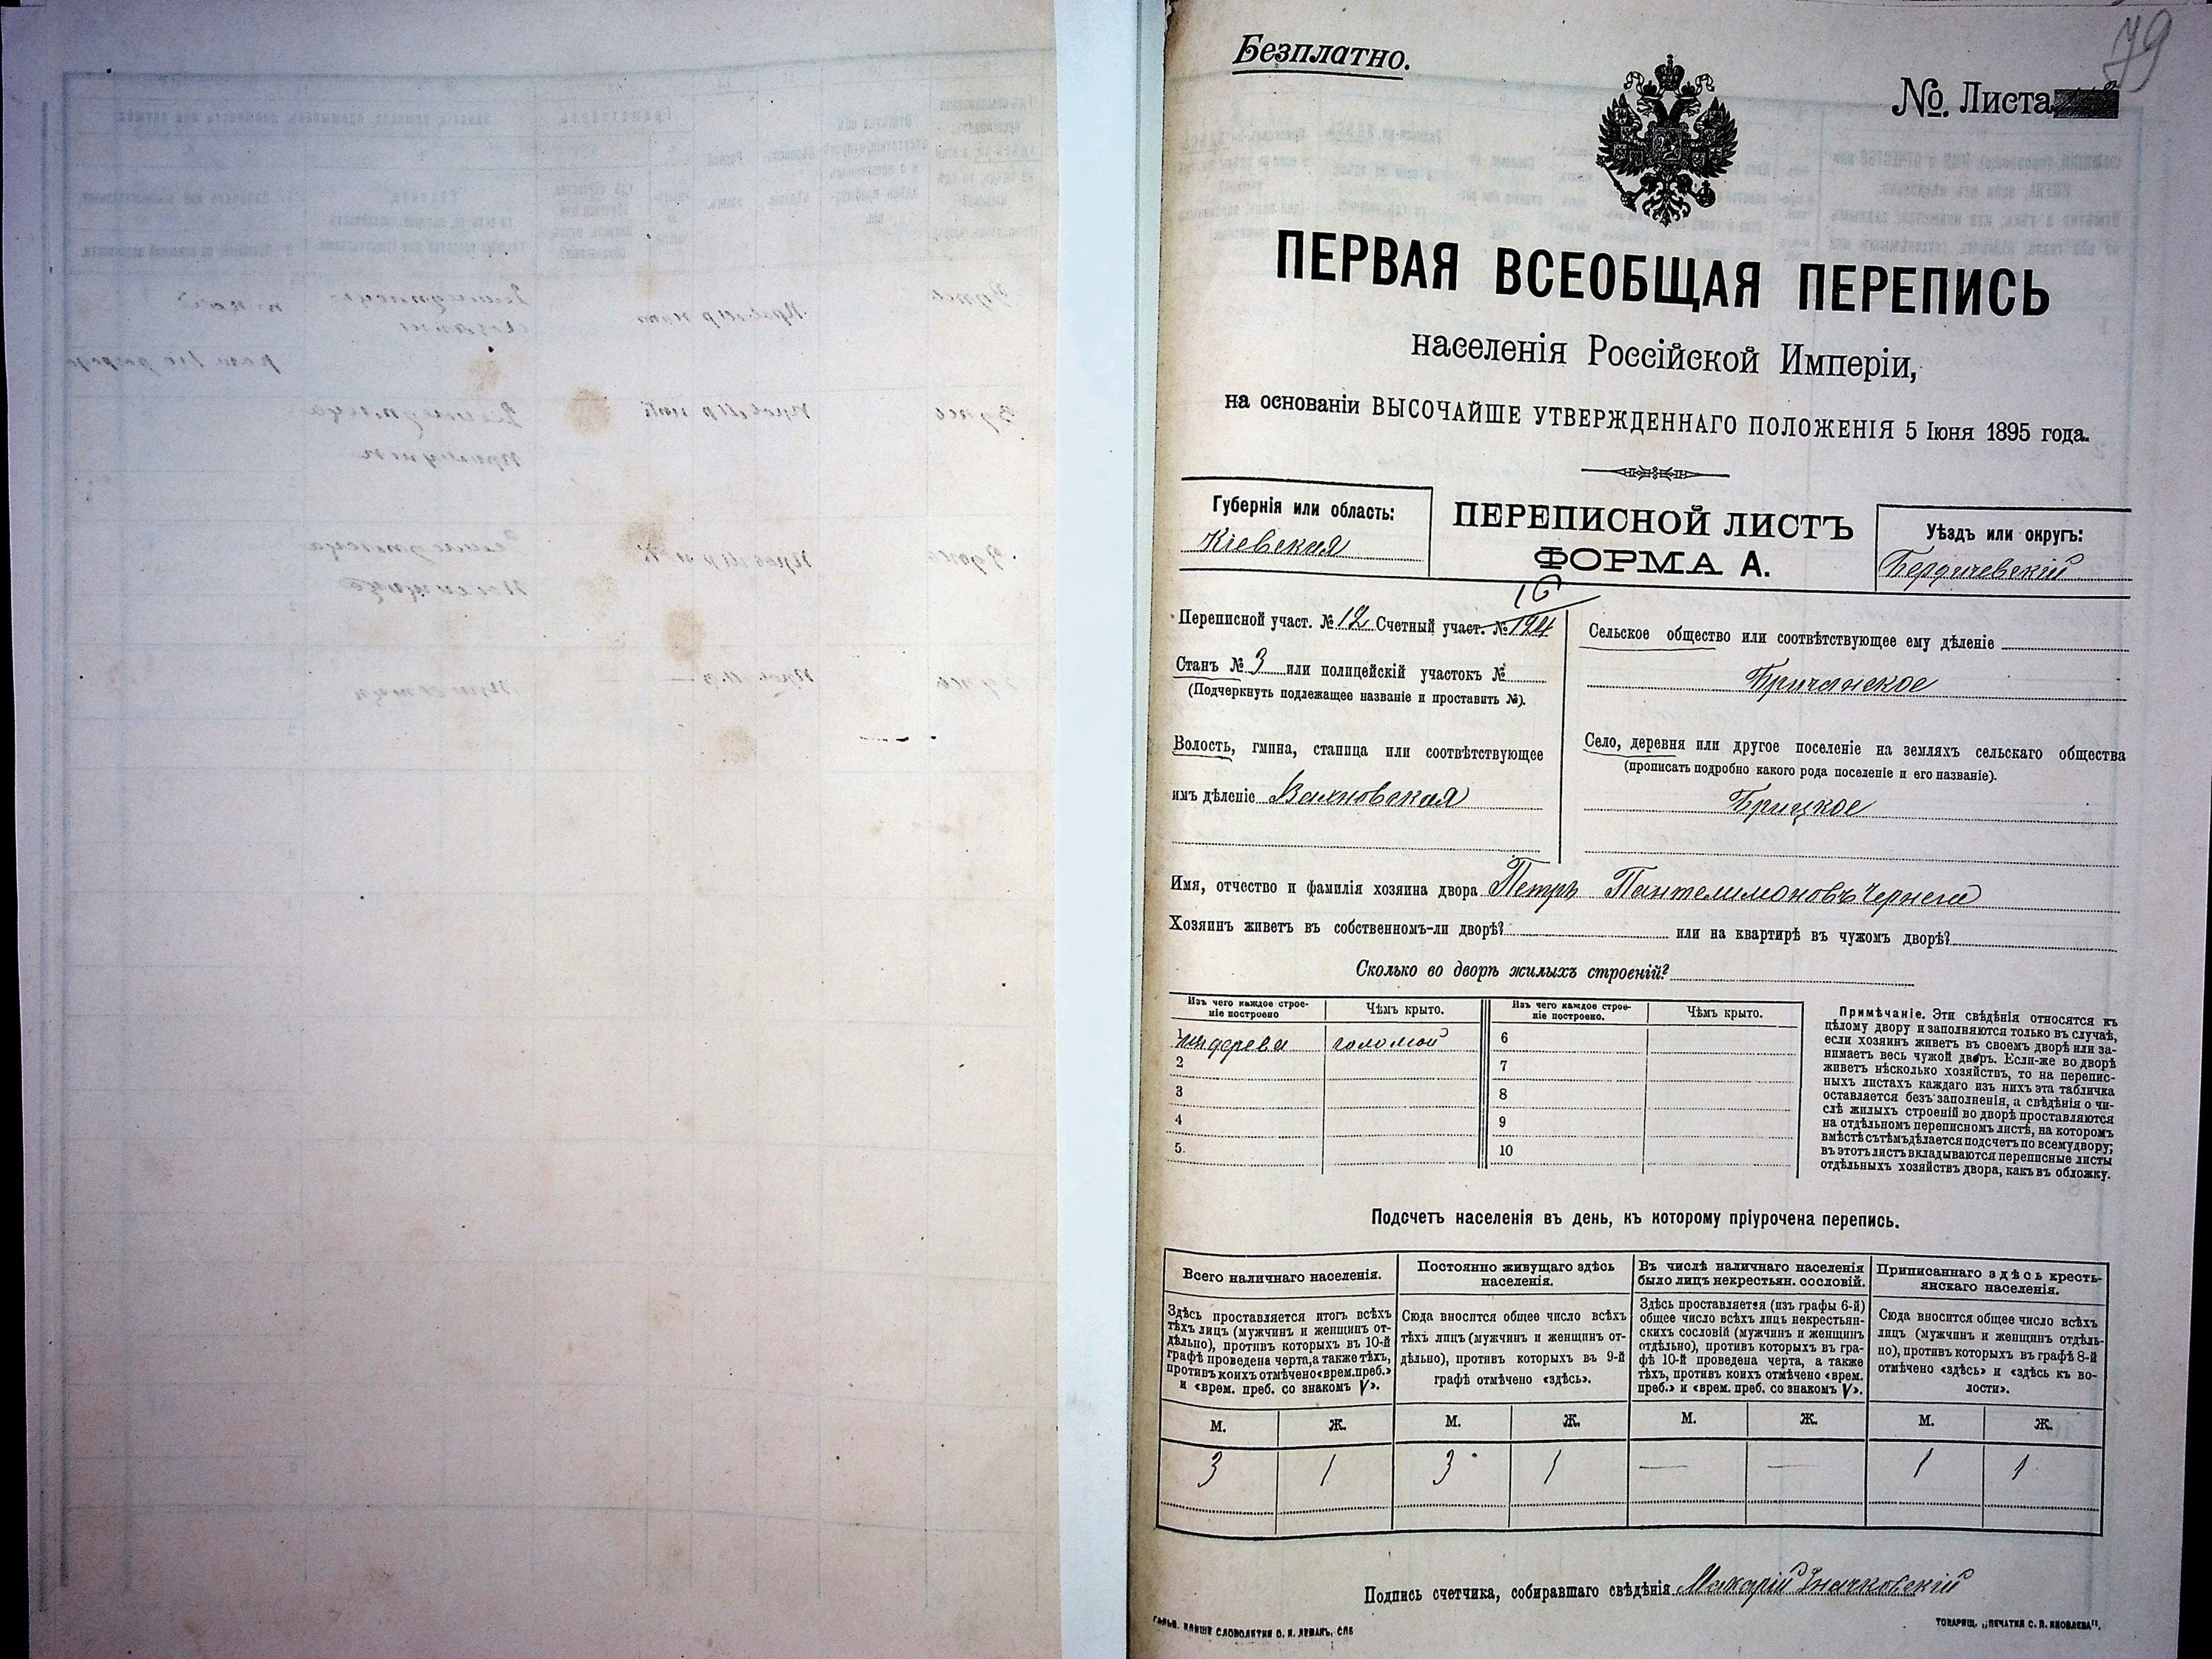 79
Безплатно.
№. Листа
ПЕРВАЯ ВСЕОБЩАЯ ПЕРЕПИСЬ
населенія Россійской Имперіи,
на основаніи ВЫСОЧАЙШЕ УТВЕРЖДЕННАГО ПОЛОЖЕНІЯ 5 Іюня 1895 года.
Губернія или область:
Кіевская
ПЕРЕПИСНОЙ ЛИСТЪ
ФОРМА А.
Уѣздъ или округъ:
Бердичевскій
16
Переписной участ. № 12 Счетный участ. № 194
Станъ № 3 или полицейскій участокъ №
(Подчеркнуть подлежащее названіе и проставить №).
Волость, гмина, станица или соотвѣтствующее
имъ дѣленіе Вахновская
Сельское общество или соотвѣтствующее ему дѣленіе
Бричанское
Село, деревня или другое поселеніе на земляхъ сельскаго общества
(прописать подробно какого рода поселеніе и его названіе).
Брицкое
Имя, отчество и фамилія хозяина двора Петръ Пантелимоновъ Чернега
Хозяинъ живетъ въ собственномъ-ли дворѣ? или на квартирѣ въ чужомъ дворѣ?
Сколько во дворѣ жилыхъ строеній?
Изъ чего каждое строе-
ніе построено
Чѣмъ крыто.
Изъ чего каждое строе-
ніе построено.
Чѣмъ крыто.
1 дерева соломой 6
2 7
3 8
4 9
5. 10
Примѣчаніе. Эти свѣдѣнія относятся къ
цѣлому двору и заполняются только въ случаѣ,
если хозяинъ живетъ въ своемъ дворѣ или за-
нимаетъ весь чужой дворъ. Если-же во дворѣ
живетъ нѣсколько хозяйствъ, то на перепис-
ныхъ листахъ каждаго изъ нихъ эта табличка
оставляется безъ заполненія, а свѣдѣнія о чи-
слѣ жилыхъ строеній во дворѣ проставляются
на отдѣльномъ переписномъ листѣ, на которомъ
вмѣстѣ съ тѣмъ дѣлается подсчетъ по всему двору;
въ этотъ листъ вкладываются переписные листы
отдѣльныхъ хозяйствъ двора, какъ въ обложку.
Подсчетъ населенія въ день, къ которому пріурочена перепись.
Всего наличнаго населенія.
Здѣсь проставляется итогъ всѣхъ
тѣхъ лицъ (мужчинъ и женщинъ от-
дѣльно), противъ которыхъ въ 10-й
графѣ проведена черта, а также тѣхъ,
противъ коихъ отмѣчено «врем. преб.»
и «врем. преб. со знакомъ V».
Постоянно живущаго здѣсь
населенія.
Сюда вносится общее число всѣхъ
тѣхъ лицъ (мужчинъ и женщинъ от-
дѣльно), противъ которыхъ въ 9-й
графѣ отмѣчено «здѣсь».
Въ числѣ наличнаго населенія
было лицъ некрестьян. сословій.
Здѣсь проставляется (изъ графы 6-й)
общее число всѣхъ лицъ некрестьян-
скихъ сословій (мужчинъ и женщинъ
отдѣльно), противъ которыхъ въ гра-
фѣ 10-й проведена черта, а также
тѣхъ, противъ коихъ отмѣчено «врем.
преб.» и «врем. преб. со знакомъ V».
Приписаннаго здѣсь кресть-
янскаго населенія.
Сюда вносится общее число всѣхъ
лицъ (мужчинъ и женщинъ отдѣль-
но), противъ которыхъ въ графѣ 8-й
отмѣчено «здѣсь» и «здѣсь къ во-
лости».
М. Ж. М. Ж. М. Ж. М. Ж.
3 1 3 1 — — 1 1
Подпись счетчика, собиравшаго свѣдѣнія Макарій Значковскій
СЛОВОЛИТНИ О. И. ЛЕМАНЪ, СПБ
ТОВАРИЩ. „ПЕЧАТНЯ С. П. ЯКОВЛЕВА".